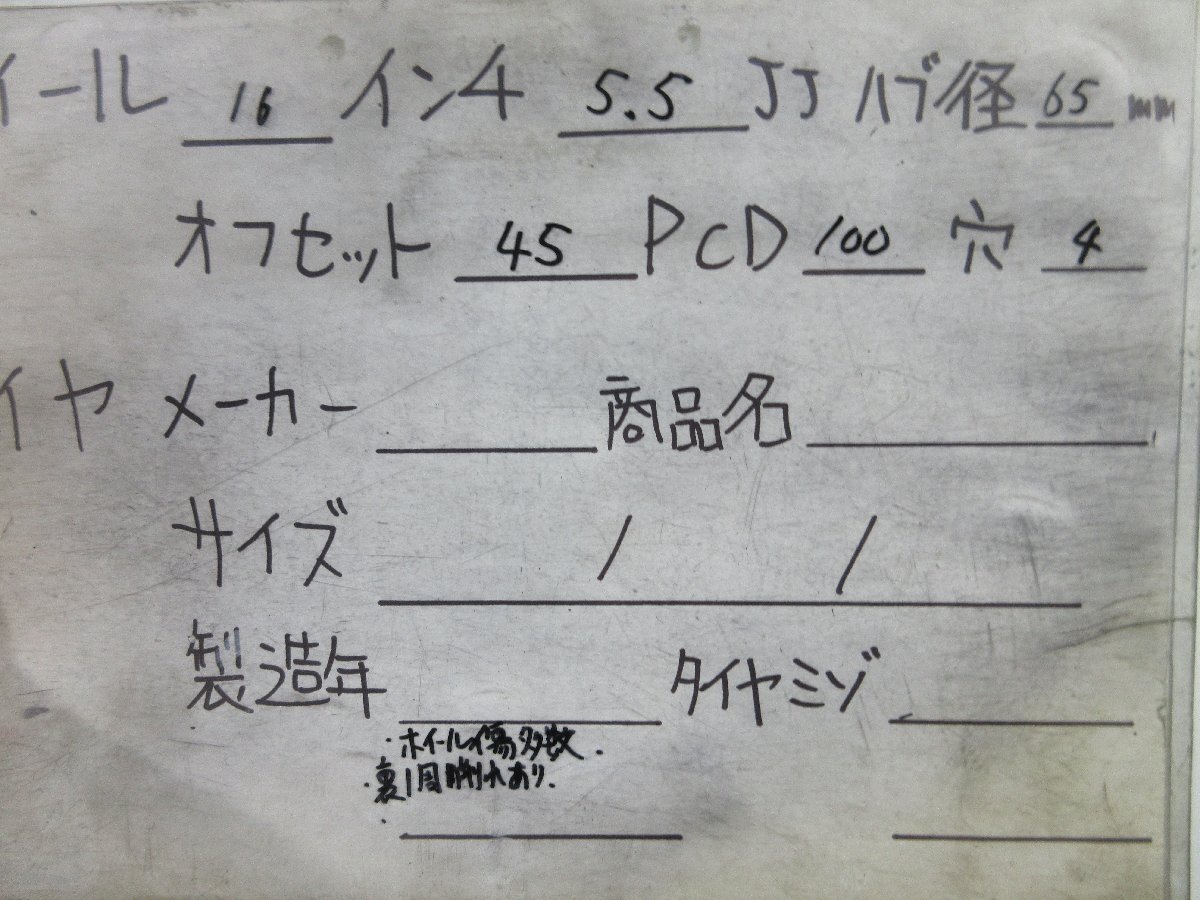 イール 16 インチ 5.5 JJ ハブ径 65 mm
オフセット 45 PCD 100 穴 4
イヤ メーカー 商品名
サイズ / /
製造年 タイヤミゾ
・ホイール傷多数.
・裏1周擦れあり.
・